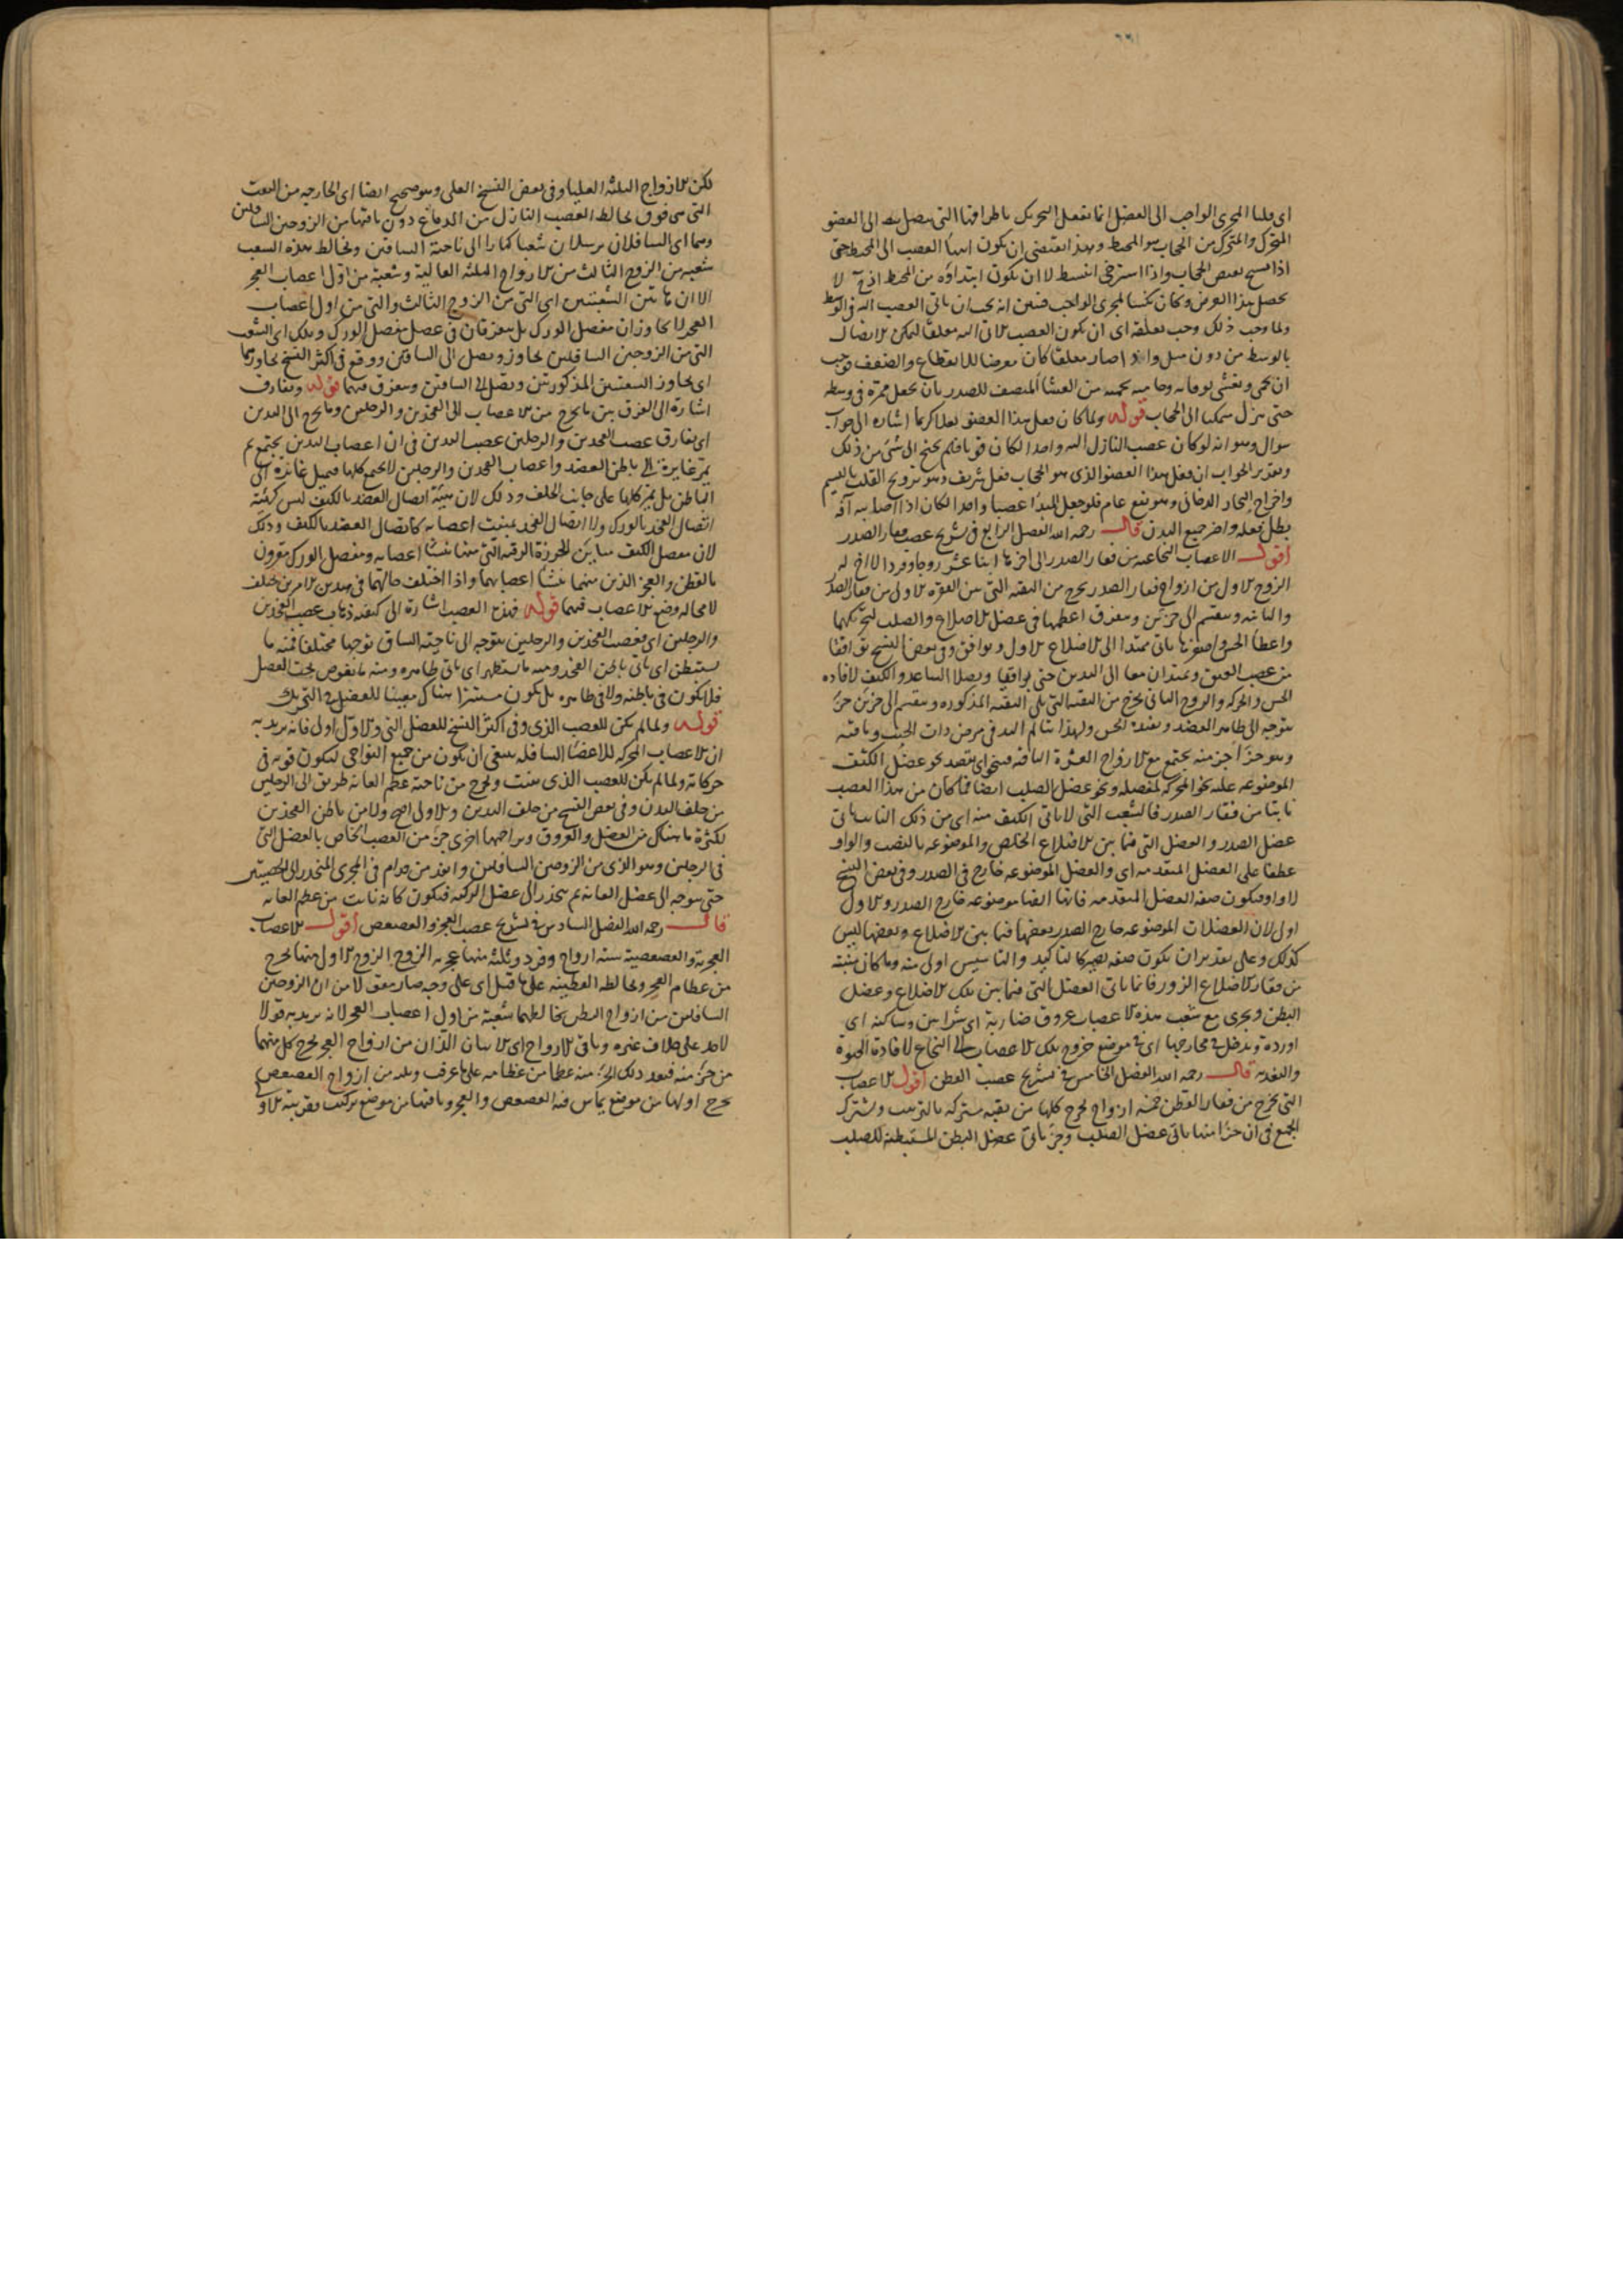 اى قلنا المجرى الواجب الى العضل انما تفعل التحريك باطرافها التى يتصل بها الى العضو
المتحرك والمتحرك من الحجاب هو المحيط وهذا يقتضى ان يكون انتهاء العصب الى المحيط حتى
اذا تشنج تقبض الحجاب واذا استرخى انبسط لا ان يكون ابتداؤه من المحيط اذ ح لا
يحصل هذا الغرض وكان المجرى الواجب فتبين انه يجب ان ياتى العصب اليه فى الوسط
ولما وجب ذلك وجب تعلقه اى ان يكون العصب الاتى اليه معلقا ليمكن الاتصال
بالوسط من دون ميل واذا صار معلقا كان معرضا للانقطاع والضعف فوجب
ان يحمى ويغشى بوقاية وحامية تحميه من الغشاء المنصف للصدر بان يجعل ممره فى وسطه
حتى ينزل متكئا الى الحجاب قوله ولما كان فعل هذا العضو فعلا كريما اشارة الى جواب
سوال وهو انه لو كان عصب النازل اليه واحدا لكان قويا فلم يحتج الى شئ من ذلك
وتقرير الجواب ان فعل هذا العضو الذى هو الحجاب فعل شريف وهو ترويح القلب بالنسيم
واخراج البخار الدخانى وهو نفع عام فلو جعل المبدا عصبا واحدا لكان اذا اصابه آفة
بطل فعله واضر جميع البدن قال رحمه الله الفصل الرابع فى تشريح عصب فقار الصدر
اقول الاعصاب النخاعية من فقار الصدر الى اخرها اثنا عشر زوجا وفرد لا اخ له
الزوج الاول من ازواج فقار الصدر يخرج من الثقبة التى بين الفقرة الاولى من فقار الصدر
والثانية وينقسم الى جزئين ويتفرق اعظمها فى عضل الاضلاع والصلب لتحريكهما
واعطاء الحس واصغرها ياتى ممتدا الى الاضلاع الاول ويوافق وفى بعض النسخ توافقا
من عصب العنق ويمتدان معا الى اليدين حتى يوافيا ويصلا الساعد والكتف لافادة
الحس والحركة والزوج الثانى يخرج من الثقبة التى تلى الثقبة المذكورة وينقسم الى جزئين جزء
يتوجه الى ظاهر العضد ويفيده الحس ولهذا يتالم اليد فى مرض ذات الجنب وباقيه
وهو جزء اخر منه يجتمع مع الازواج العشرة الباقية فينحو اى يقصد نحو عضل الكتف
الموضوعة عليه نحو المحركة لمفصله ونحو عضل الصلب ايضا فما كان من هذا العصب
نابتا من فقار الصدر فالشعب التى لا ياتى الكتف منه اى من ذلك النابت ياتى
عضل الصدر والعضل التى فيما بين الاضلاع الخلص والموضوعة بالنصب والواو
عطفا على العضل المتقدمة اى والعضل الموضوعة خارج فى الصدر وفى بعض النسخ
لا واو فيكون صفة العضل المتقدمة فانها ايضا موضوعة خارج الصدر والاول
اولى لان العضلات الموضوعة خارج الصدر بعضها فيما بين الاضلاع وبعضها ليس
كذلك وعلى تقدير ان يكون صفة يصير كالتاكيد والتاسيس اولى منه وما كان منبته
من فقار الاضلاع الزور فانما ياتى العضل التى فيما بين تلك الاضلاع وعضل
البطن ويجرى مع شعب هذه الاعصاب عروق ضاربة اى شرايين وساكنة اى
اوردة ويدخل فى مخارجها اى فى موضع خروج تلك الاعصاب الى النخاع لافادة الحيوة
والتغذية قال رحمه الله الفصل الخامس فى تشريح عصب القطن اقول الاعصاب
التى تخرج من فقار القطن خمسة ازواج يخرج كلها من ثقبة مشتركة بالترتيب ويشترك
الجميع فى ان جزءا منها ياتى عضل الصلب وجزء ياتى عضل البطن المستبطنة للصلب
لكن الازواج الثلثة العليا وفى بعض النسخ العلى وهو صحيح ايضا اى الخارجة من الثقب
التى هى فوق يخالط العصب النازل من الدماغ دون باقيها من الزوجين السافلين
وهما اى السافلان يرسلان شعبا كبارا الى ناحية الساقين ويخالط هذه الشعب
شعبة من الزوج الثالث من الازواج الثلثة العالية وشعبة من اول اعصاب العجز
الا ان هاتين الشعبتين اى التى من الزوج الثالث والتى من اول اعصاب
العجز لا يجاوزان مفصل الورك بل يتفرقان فى عضل مفصل الورك وتلك اى الشعب
التى من الزوجين السافلين يجاوز ويصل الى الساقين ووقع فى اكثر النسخ يجاوزها
اى يجاوز الشعبتين المذكورتين ويصل الى الساقين ويتفرق فيهما قوله ويفارق
اشارة الى الفرق بين ما يخرج من الاعصاب الى الفخذين والرجلين وما يخرج الى اليدين
اى يفارق عصب الفخذين والرجلين عصب اليدين فى ان اعصاب اليدين يجتمع ثم
يمر غايرة الى باطن العضد واعصاب الفخذين والرجلين لا يجتمع كلها فيميل غايرة الى
الباطن بل يمر كلها على جانب الخلف وذلك لان هيئة اتصال العضد بالكتف ليس كهيئة
اتصال الفخذ بالورك ولا اتصال الفخذ بمنبت اعصابه كاتصال العضد بالكتف وذلك
لان مفصل الكتف مباين للخرزة الرقبة التى منها ينشا اعصابه ومفصل الورك مقرون
بالقطن والعجز الذين منهما ينشا اعصابهما واذا اختلف حالهما فى هذين الامرين يختلف
لا محالة وضع الاعصاب فيهما قوله فهذا العصب اشارة الى كيفية ذهاب عصب الفخذين
والرجلين اى فعصب الفخذين والرجلين يتوجه الى ناحية الساق توجها مختلفا فمنه ما
يستبطن اى ياتى باطن الفخذ ومنه ما يستظهر اى ياتى ظاهره ومنه ما يغوص تحت العضل
فلا يكون فى باطنه ولا فى ظاهره بل يكون مستترا هناك معينا للعضل فى التحريك
قوله ولما لم يكن للعصب الذى وفى اكثر النسخ للعضل التى والاول اولى فانه يريد به
ان الاعصاب المحركة للاعضاء السافلة ينبغى ان يكون من جميع النواحى ليكون قوية فى
حركاته ولما لم يكن للعصب الذى ينبت ويخرج من ناحية عظم العانة طريق الى الرجلين
من خلف البدن وفى بعض النسخ من خلف اليدين والاولى اصح ولا من باطن الفخذين
لكثرة ما هناك من العضل والعروق ومزاحمها اجرى جزء من العصب الخاص بالعضل التى
فى الرجلين وهو الذى من الزوجين السافلين وانفذ من قدام فى المجرى المنحدر الى الخصيتين
حتى يتوجه الى عضل العانة ثم ينحدر الى عضل الركبة فيكون كانه نابت من عظم العانة
قال رحمه الله الفصل السادس فى تشريح عصب العجز والعصعص اقول الاعصاب
العجزية والعصعصية ستة ازواج وفرد وثلثة منها عجزية الزوج الزوج الاول منها يخرج
من عظام العجز ويخالطه القطنية على ما قيل اى على وجه صار معقولا من ان الزوجين
السافلين من ازواج القطن يخالطهما شعبة من اول اعصاب العجز لانه يريد به قولا
لاحد على خلاف غيره وباقى الازواج اى الاثنان اللذان من ازواج العجز يخرج كل منهما
من جزء منه فبعد ذلك الجزء منه عظما من عظامه على ما عرف وثلثة من ازواج العصعص
يخرج اولها من موضع تماس فيه العصعص والعجز وباقيها من موضع تركيب فقرتيه الاو